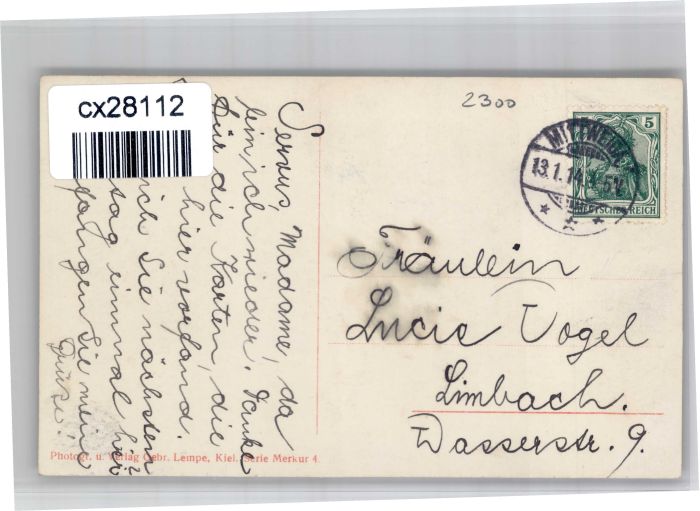 cx28112
2300
5
13.1.14
DEUTSCHES REICH
Servus, Madame, da
bin ich wieder. Danke
für die Karten, die
hier vorfand.
ich Sie nächsten
tag einmal hier?
fangen Sie mein
Grüße!
Fräulein
Lucie Vogel
Limbach.
Wasserstr. 9.
Photogr. u. Verlag Gebr. Lempe, Kiel. Serie Merkur 4.